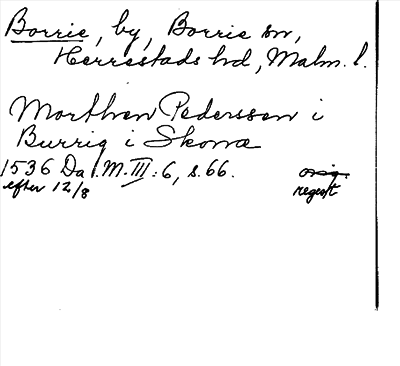 Borrie, by, Borrie sn,
Herrestads hd, Malm. l.
Morthen Pederssen i
Burrig i Skonæ
1536 Da l.M. III:6, s.66. orig.
efter 12/8 regest